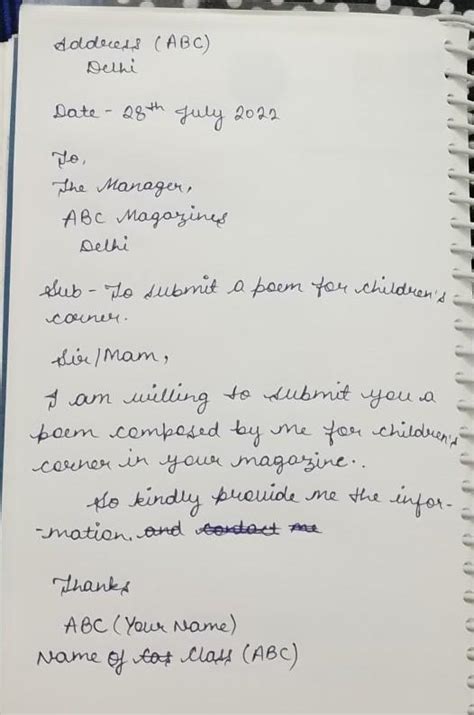 Address (ABC)
Delhi
Date - 28th July 2022
To,
The Manager,
ABC Magazines
Delhi
Sub - To submit a poem for children's
corner.
Sir/Mam,
I am willing to submit you a
poem composed by me for children's
corner in your magazine..
So kindly provide me the infor-
-mation. and contact me
Thanks
ABC (Your Name)
Name of Class (ABC)